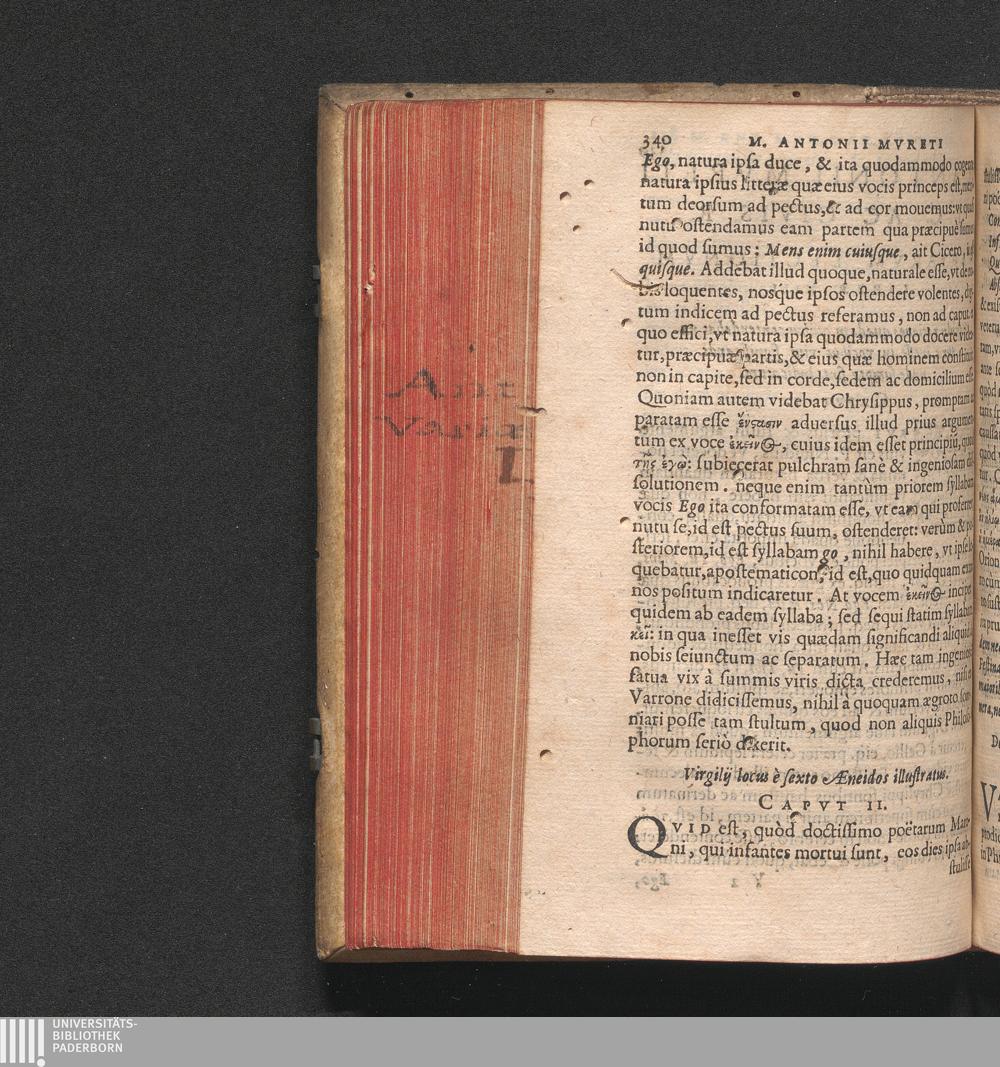 340 M. ANTONII MVRETI
Ego, natura ipſa duce, & ita quodammodo
natura ipſius litteræ quæ eius vocis princeps eſt,
tum deorſum ad pectus, & ad cor mouemus: vt
nutu oſtendamus eam partem qua præcipuè
id quod ſumus; Mens enim cuiuſque, ait Cicero,
quiſque. Addebat illud quoque, naturale eſſe, vt de
bis loquentes, noſque ipſos oſtendere volentes,
tum indicem ad pectus referamus, non ad caput.
quo effici, vt natura ipſa quodammodo docere
tur, præcipuæ partis, & eius quæ hominem
non in capite, ſed in corde, ſedem ac domicilium
Quoniam autem videbat Chryſippus,
paratam eſſe aduerſus illud prius
tum ex voce ἐκεῖνος, cuius idem eſſet principiū,
τῆς ἐγώ: ſubiecerat pulchram ſanè & ingenioſam
ſolutionem. neque enim tantùm priorem
vocis Ego ita conformatam eſſe, vt eam qui
nutu ſe, id eſt pectus ſuum, oſtenderet: verùm &
ſteriorem, id eſt ſyllabam go, nihil habere, vt
quebatur, apoſtematicon, id eſt, quo quidquam
nos poſitum indicaretur. At vocem ἐκεῖνος
quidem ab eadem ſyllaba; ſed ſequi ſtatim
κεῖ: in qua ineſſet vis quædam ſignificandi
nobis ſeiunctum ac ſeparatum. Hæc tam
fatua vix à ſummis viris dicta crederemus,
Varrone didiciſſemus, nihil à quoquam ægroto
niari poſſe tam ſtultum, quod non aliquis
phorum ſeriò dixerit.
Virgilij locus è ſexto Æneidos illuſtratus.
CAPVT II.
QVID eſt, quòd doctiſſimo poëtarum
ni, qui infantes mortui ſunt, eos dies ipſa
ſtuliſſe
Ant
Variæ
L
UNIVERSITÄTS-
BIBLIOTHEK
PADERBORN